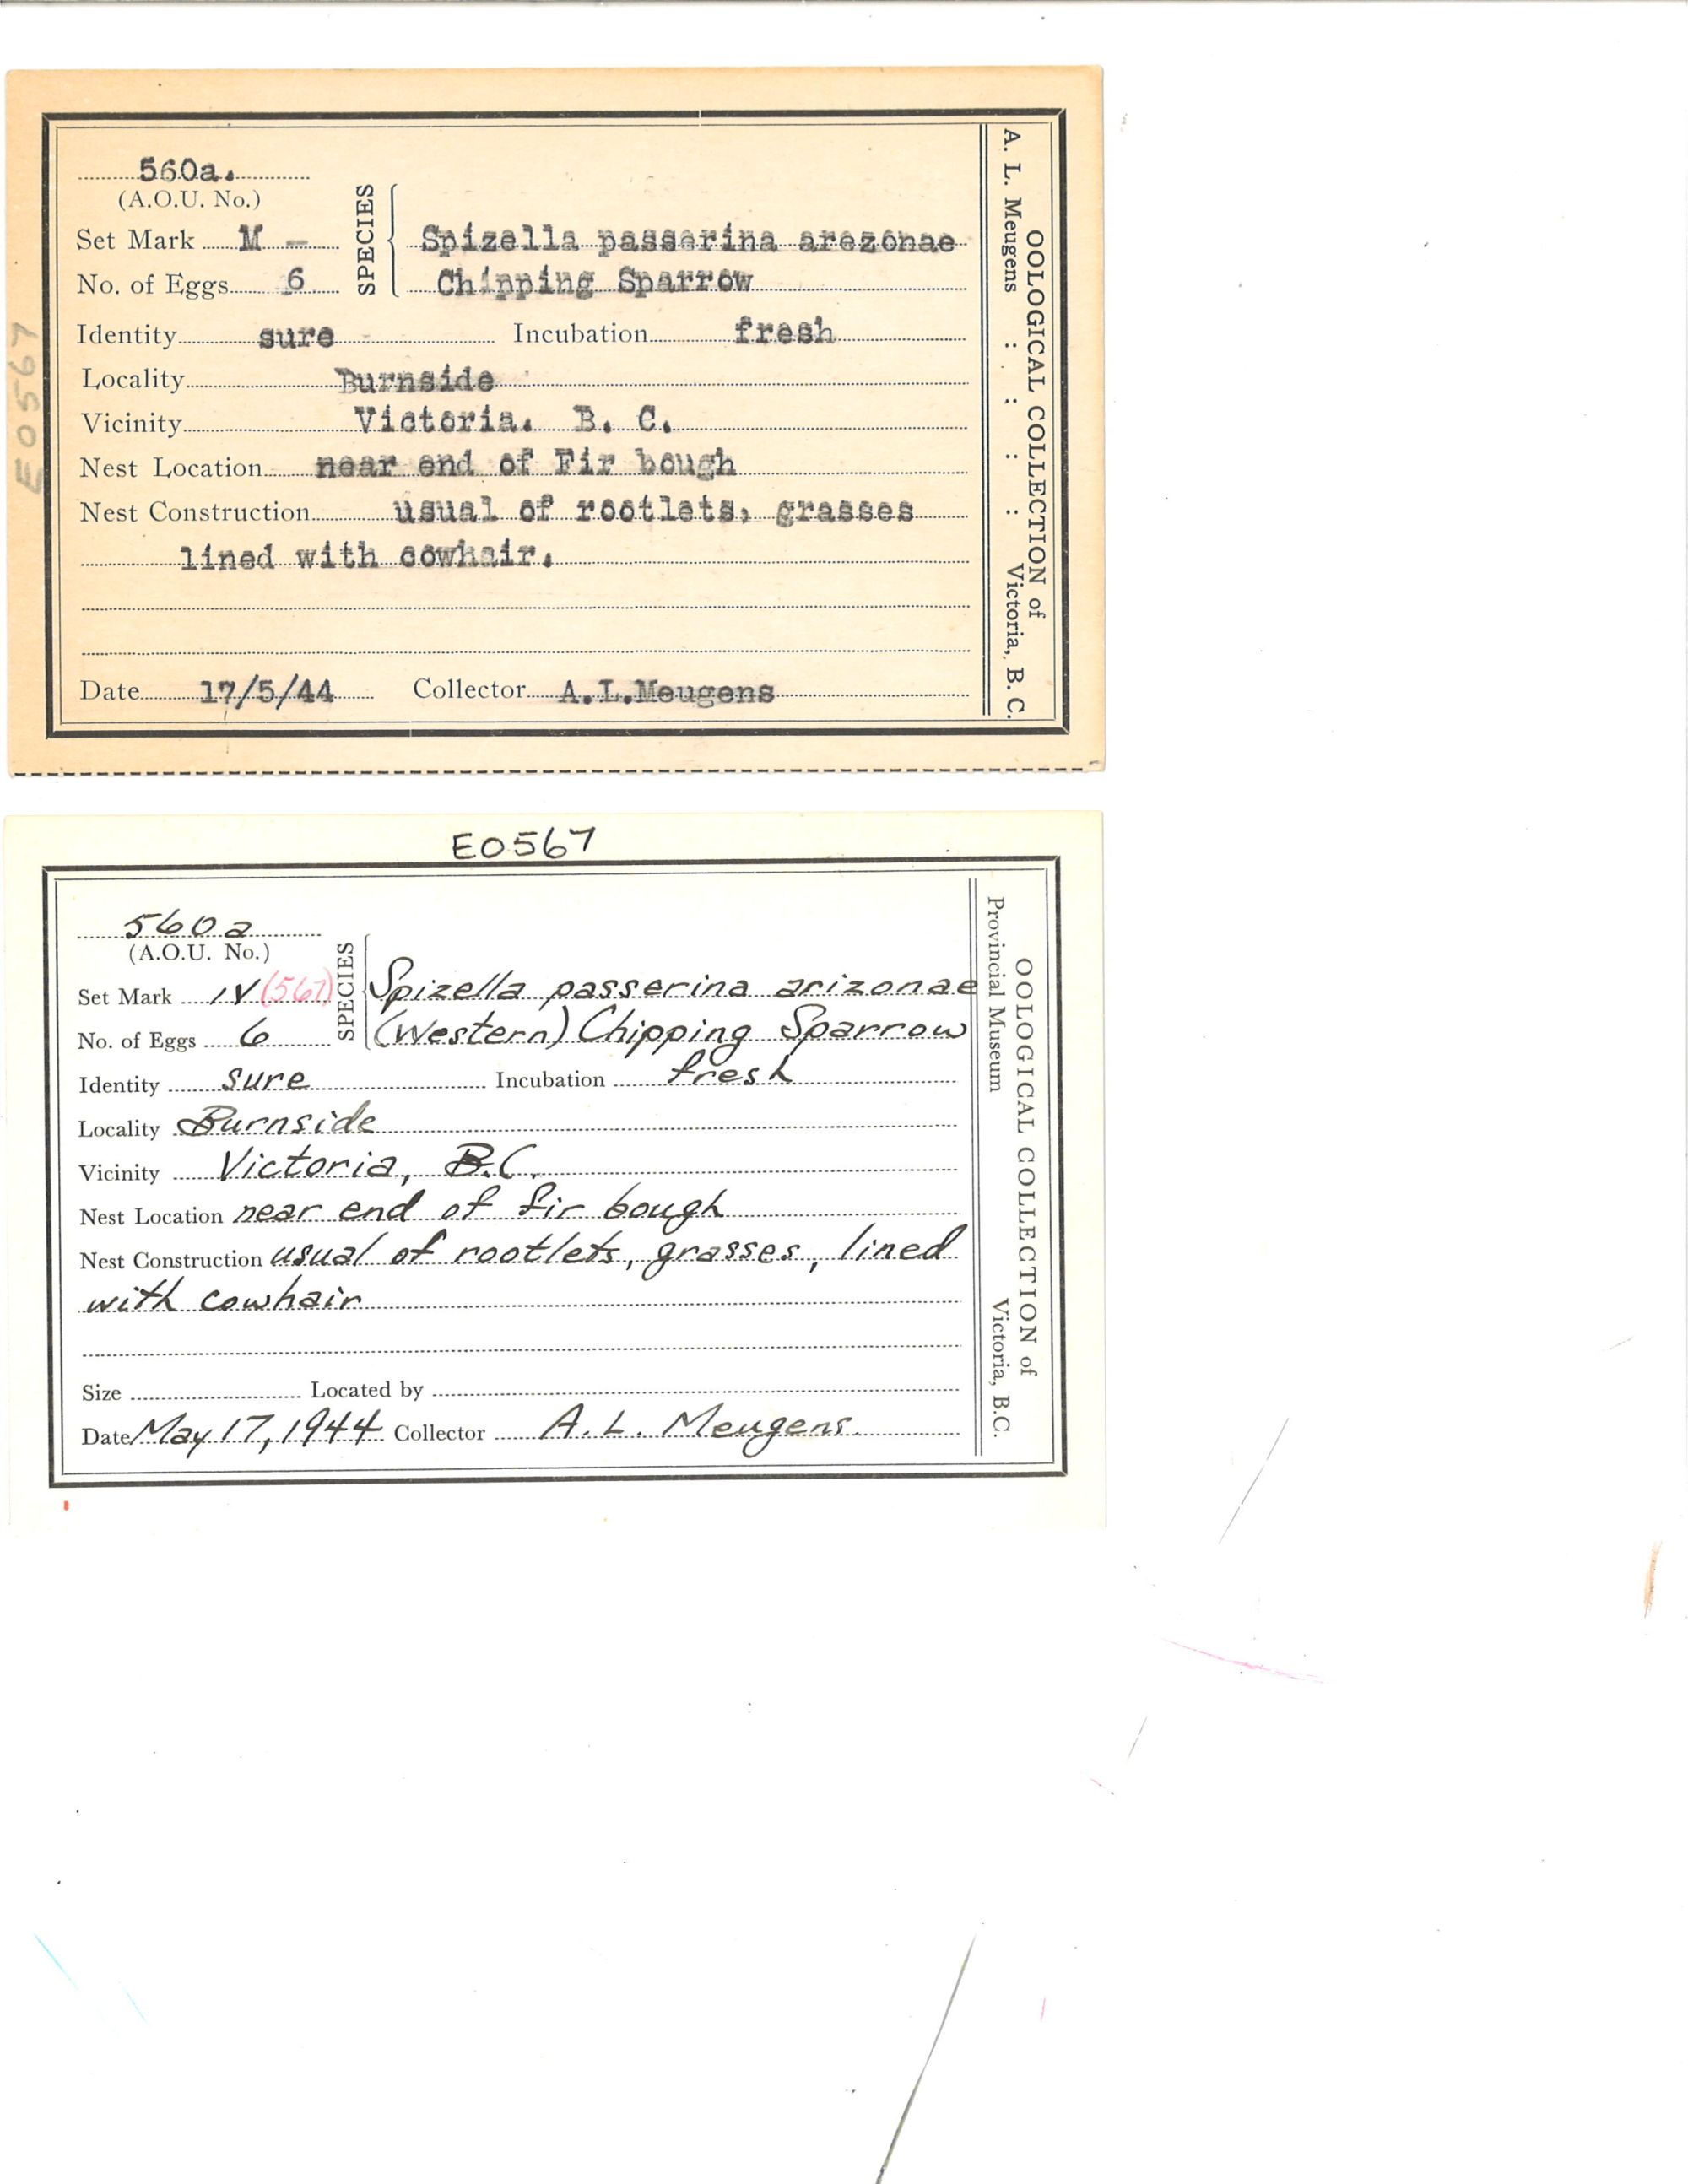 560a.
(A.O.U. No.)
Set Mark M -
No. of Eggs 6
SPECIES
Spizella passerina arezonae
Chipping Sparrow
Identity sure Incubation fresh
Locality Burnside
Vicinity Victoria. B. C.
Nest Location near end of Fir bough
Nest Construction usual of rootlets, grasses
lined with cowhair.
Date 17/5/44 Collector A.L.Meugens
OOLOGICAL COLLECTION of
A. L. Meugens : : : : Victoria, B. C.
E0567
E0567
560a
(A.O.U. No.)
Set Mark IV (567)
No. of Eggs 6
SPECIES
Spizella passerina arizonae
(Western) Chipping Sparrow
Identity sure Incubation fresh
Locality Burnside
Vicinity Victoria, B.C.
Nest Location near end of fir bough
Nest Construction usual of rootlets, grasses, lined
with cowhair
Size Located by
Date May 17, 1944 Collector A. L. Meugens.
OOLOGICAL COLLECTION of
Provincial Museum Victoria, B.C.